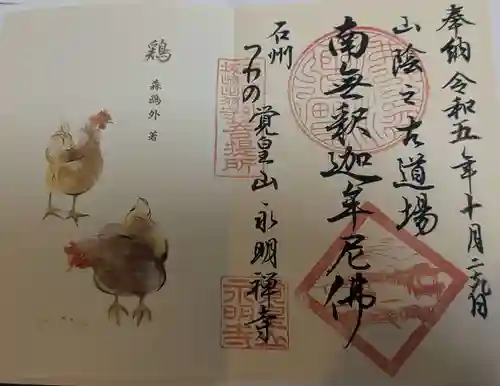 奉納 令和五年十月二十九日
山陰之古道場
南無釈迦牟尼佛
石州
つわの 覚皇山 永明禅寺
鶏
森鴎外 著
永明寺